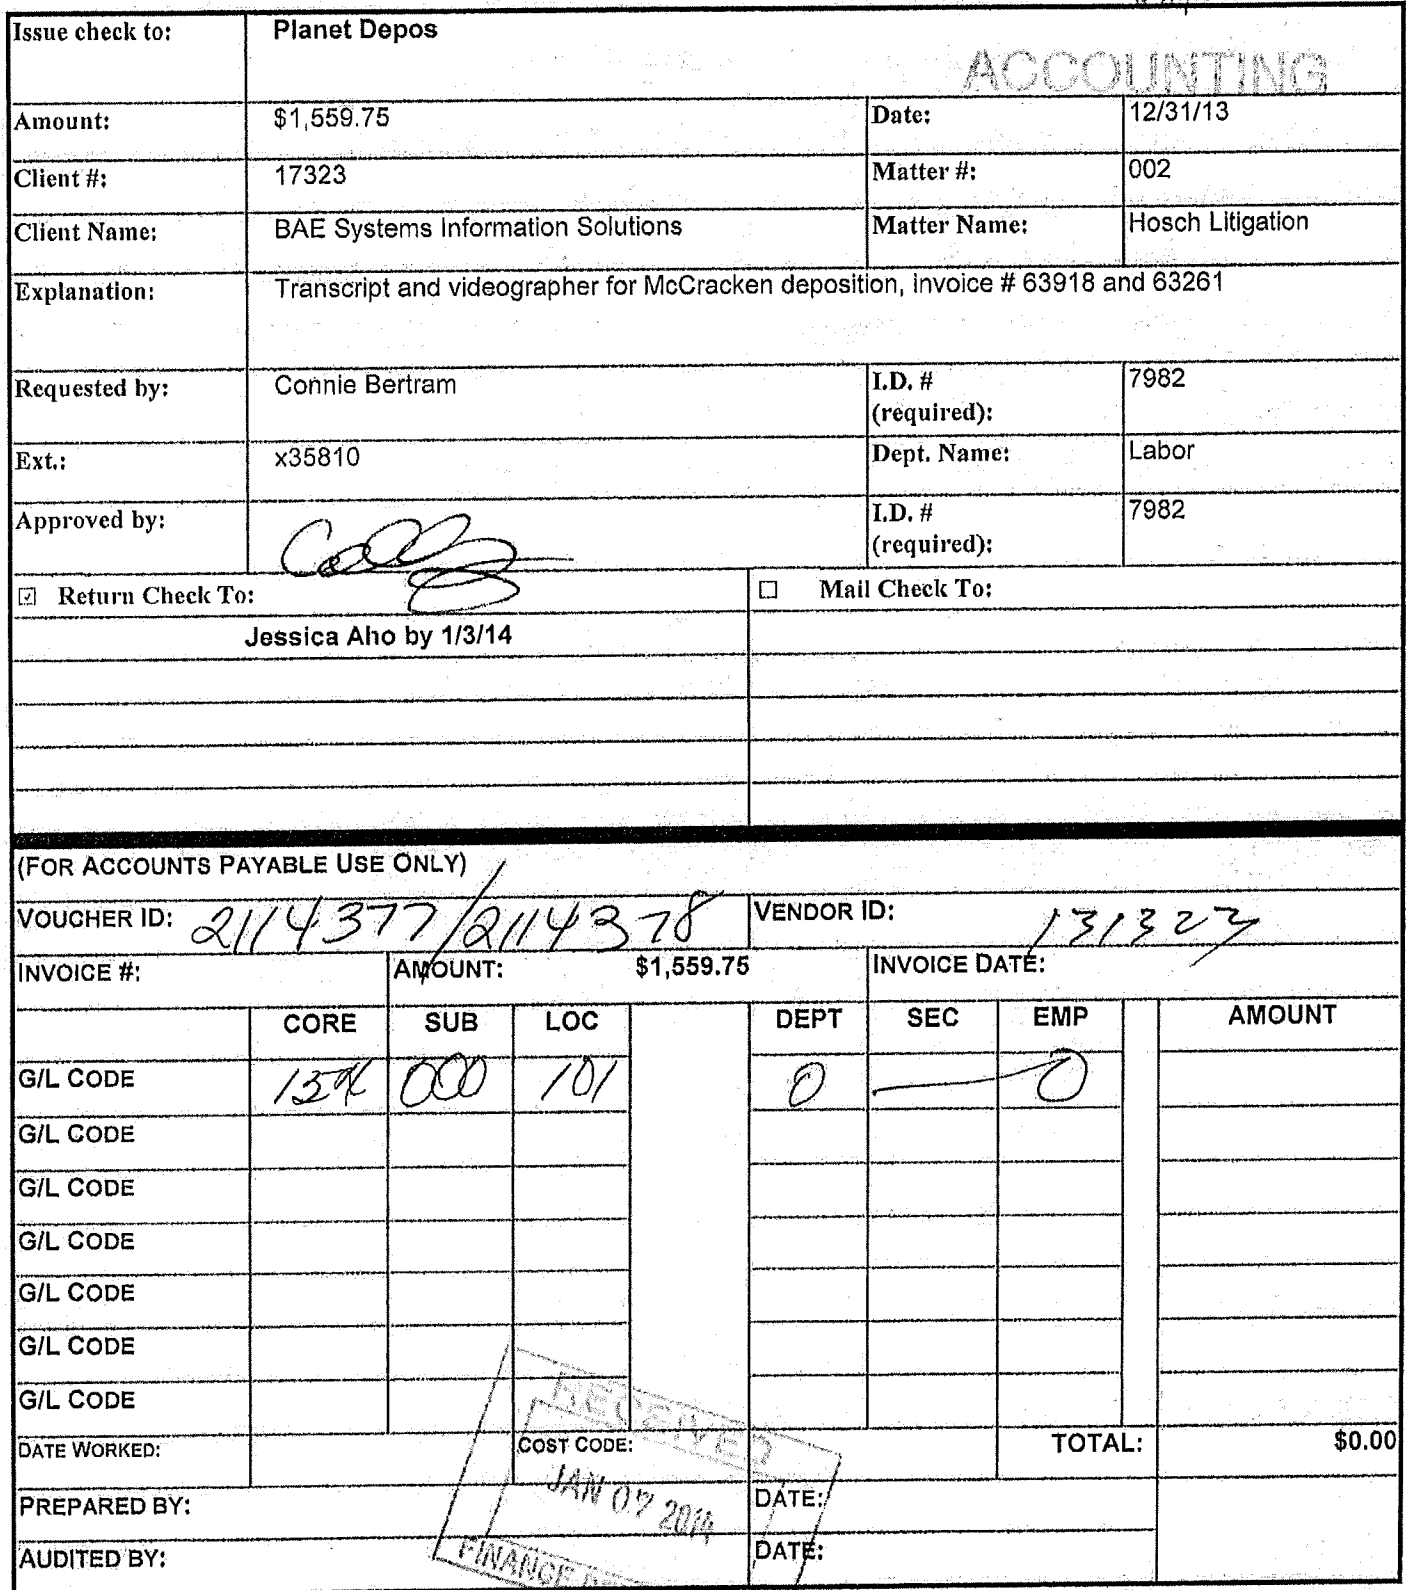 Issue check to: Planet Depos
ACCOUNTING
Amount: $1,559.75 Date: 12/31/13
Client #: 17323 Matter #: 002
Client Name: BAE Systems Information Solutions Matter Name: Hosch Litigation
Explanation: Transcript and videographer for McCracken deposition, invoice # 63918 and 63261
Requested by: Connie Bertram I.D. # 7982
(required):
Ext.: x35810 Dept. Name: Labor
Approved by: I.D. # 7982
(required):
☑ Return Check To: ☐ Mail Check To:
Jessica Aho by 1/3/14
(FOR ACCOUNTS PAYABLE USE ONLY)
VOUCHER ID: 2114377/2114378 VENDOR ID: 131323
INVOICE #: AMOUNT: $1,559.75 INVOICE DATE:
CORE SUB LOC DEPT SEC EMP AMOUNT
G/L CODE 000 101 0 — 0
G/L CODE
G/L CODE
G/L CODE
G/L CODE
G/L CODE
G/L CODE
DATE WORKED: COST CODE: TOTAL: $0.00
RECEIVED
JAN 07 2014
FINANCE
PREPARED BY: DATE:
AUDITED BY: DATE: